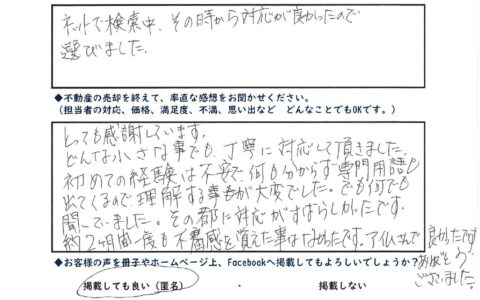 ネットで検索中、その時から対応が良かったので
選びました。
◆不動産の売却を終えて、率直な感想をお聞かせください。
（担当者の対応、価格、満足度、不満、思い出など　どんなことでもOKです。）
とっても感謝しています。
どんな小さな事でも、丁寧に対応して頂きました。
初めての経験は不安で何も分からず専門用語も
出てくるので理解する事が大変でした。でも何でも
聞いていました。その都に対応がすばらしかったです。
約2ヶ月間一度も不信感を覚えた事はなかったです。アイムさんで良かったです
ありがとう
ございました。
◆お客様の声を冊子やホームページ上、Facebookへ掲載してもよろしいでしょうか？
掲載しても良い（匿名）　・　掲載しない